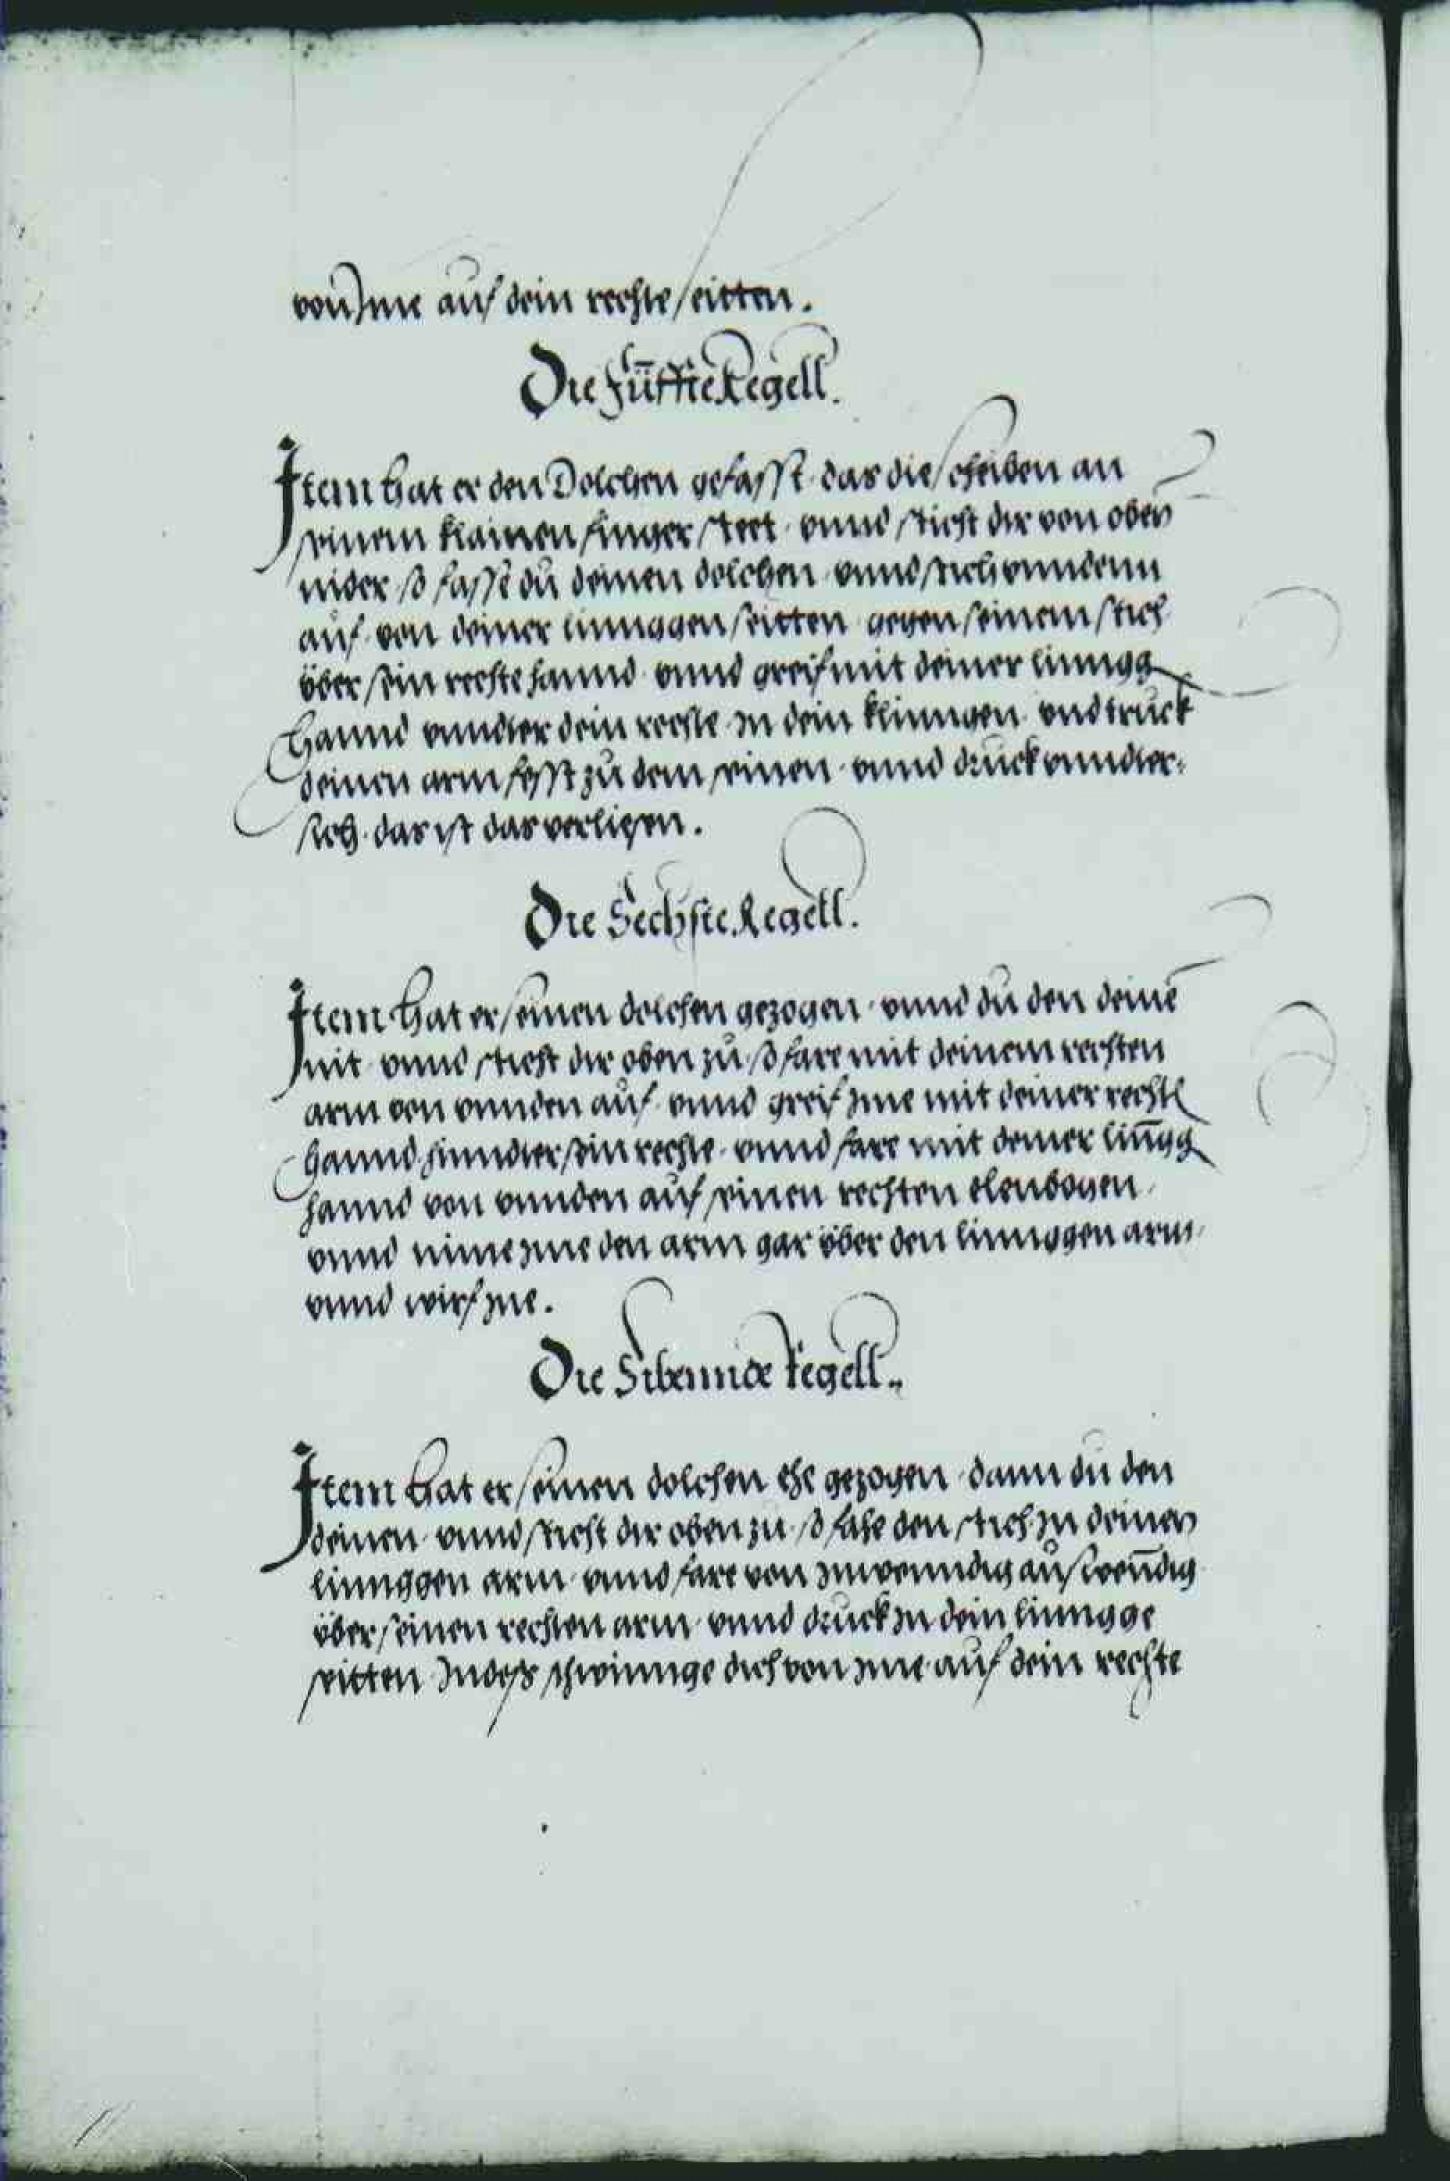 von Jme auf dein rechte seitten.
Die Fünffte Regell.
Item hat er den Dolchen gefasst das die scheiben an
seinem klainen finger stect vnnd sticht dir von oben
nider so fasse du deinen dolchen vnnd stich vnnden
auf von deiner linnggen seitten gegen seinem stich
über sein rechte hannd vnnd greif mit deiner linngg
hannd vnndter dein rechte in dein klinngen vnd truck
deinen arm fesst zu dem seinen vnnd druck vnndter
sich das ist das verligen.
Die Sechste Regell.
Item hat er seinen dolchen gezogen vnnd du den deinē
nit vnnd sticht dir oben zu so fare mit deinem rechten
arm von vnnden auf vnnd greif jme mit deiner rechtē
hannd hinndter sein rechte vnnd fare mit deiner linngg
hannd von vnnden auf seinen rechten elenbogen
vnnd nime jme den arm gar über den linnggen arm
vnnd wirf jne.
Die Sibennde Regell..
Item hat er seinen dolchen ehe gezogen dann du den
deinen vnnd sticht dir oben zu so fahe den stich in deinen
linnggen arm vnnd fare von jnnwenndig auswenndig
über seinen rechten arm vnnd druck in dein linngge
seitten Indess schwinnge dich von jme auf dein rechte